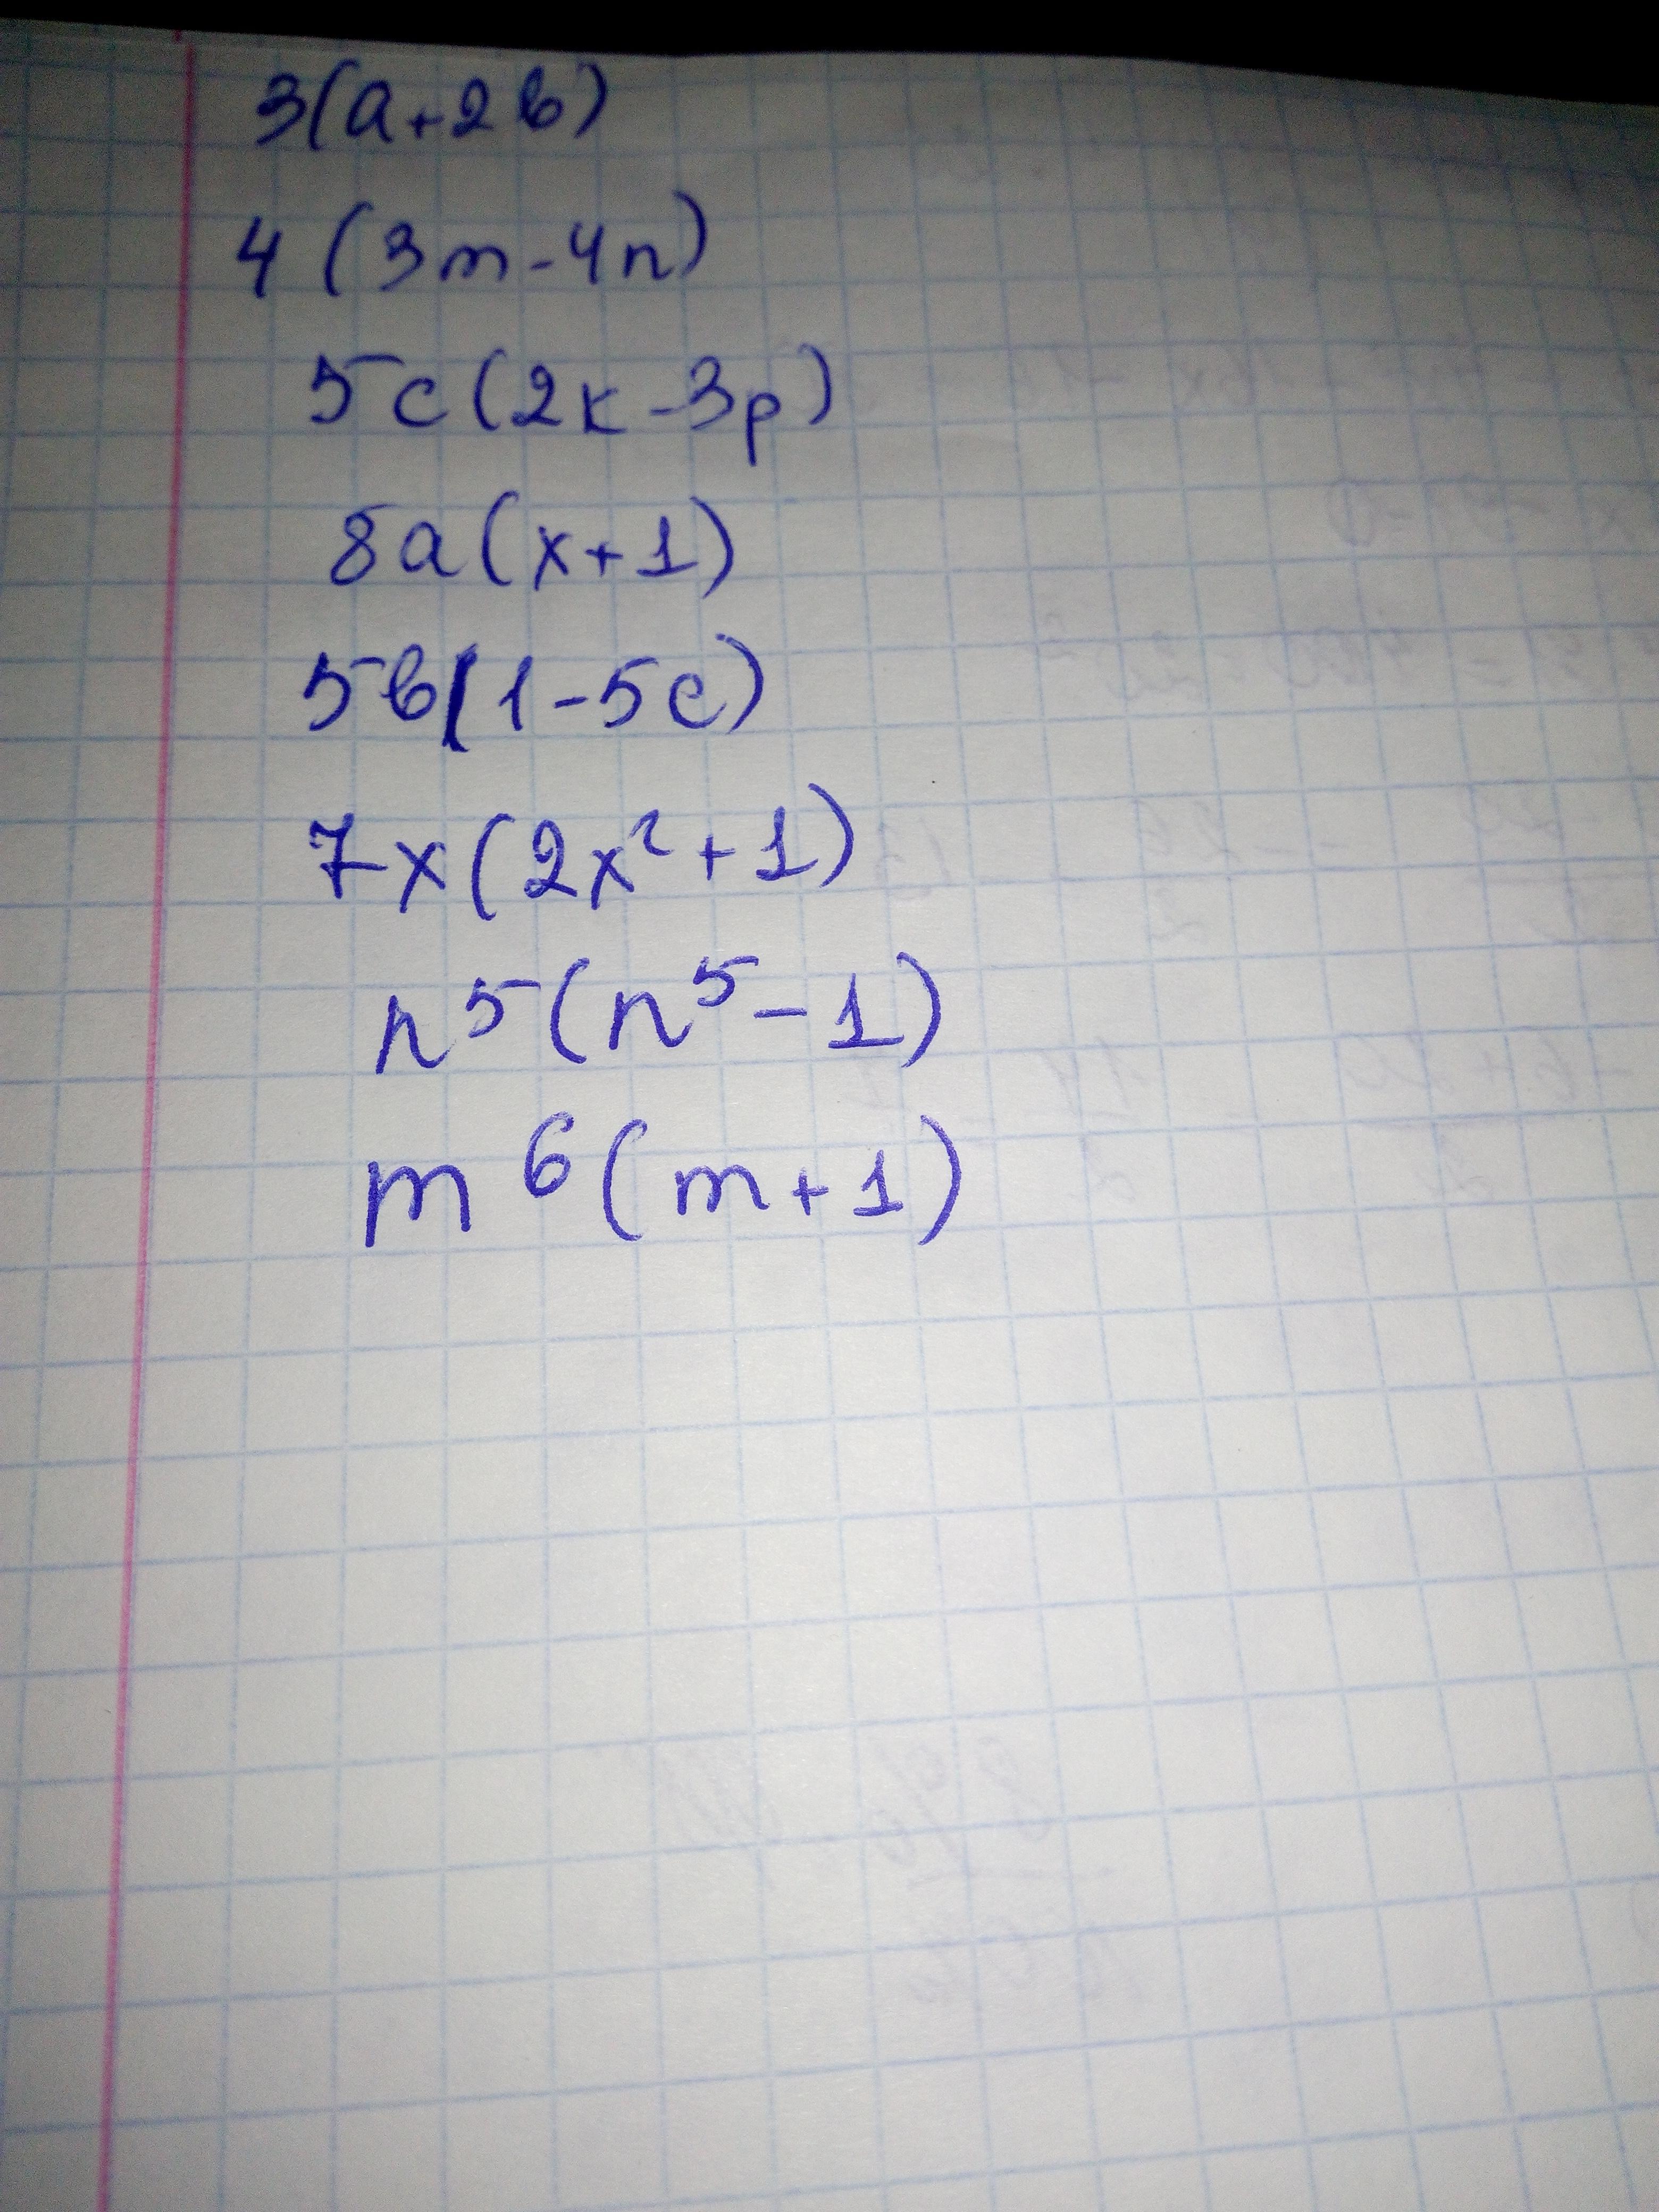 3(a+2b)
4(3m-4n)
5c(2k-3p)
8a(x+1)
5b(1-5c)
7x(2x²+1)
n⁵(n⁵-1)
m⁶(m+1)